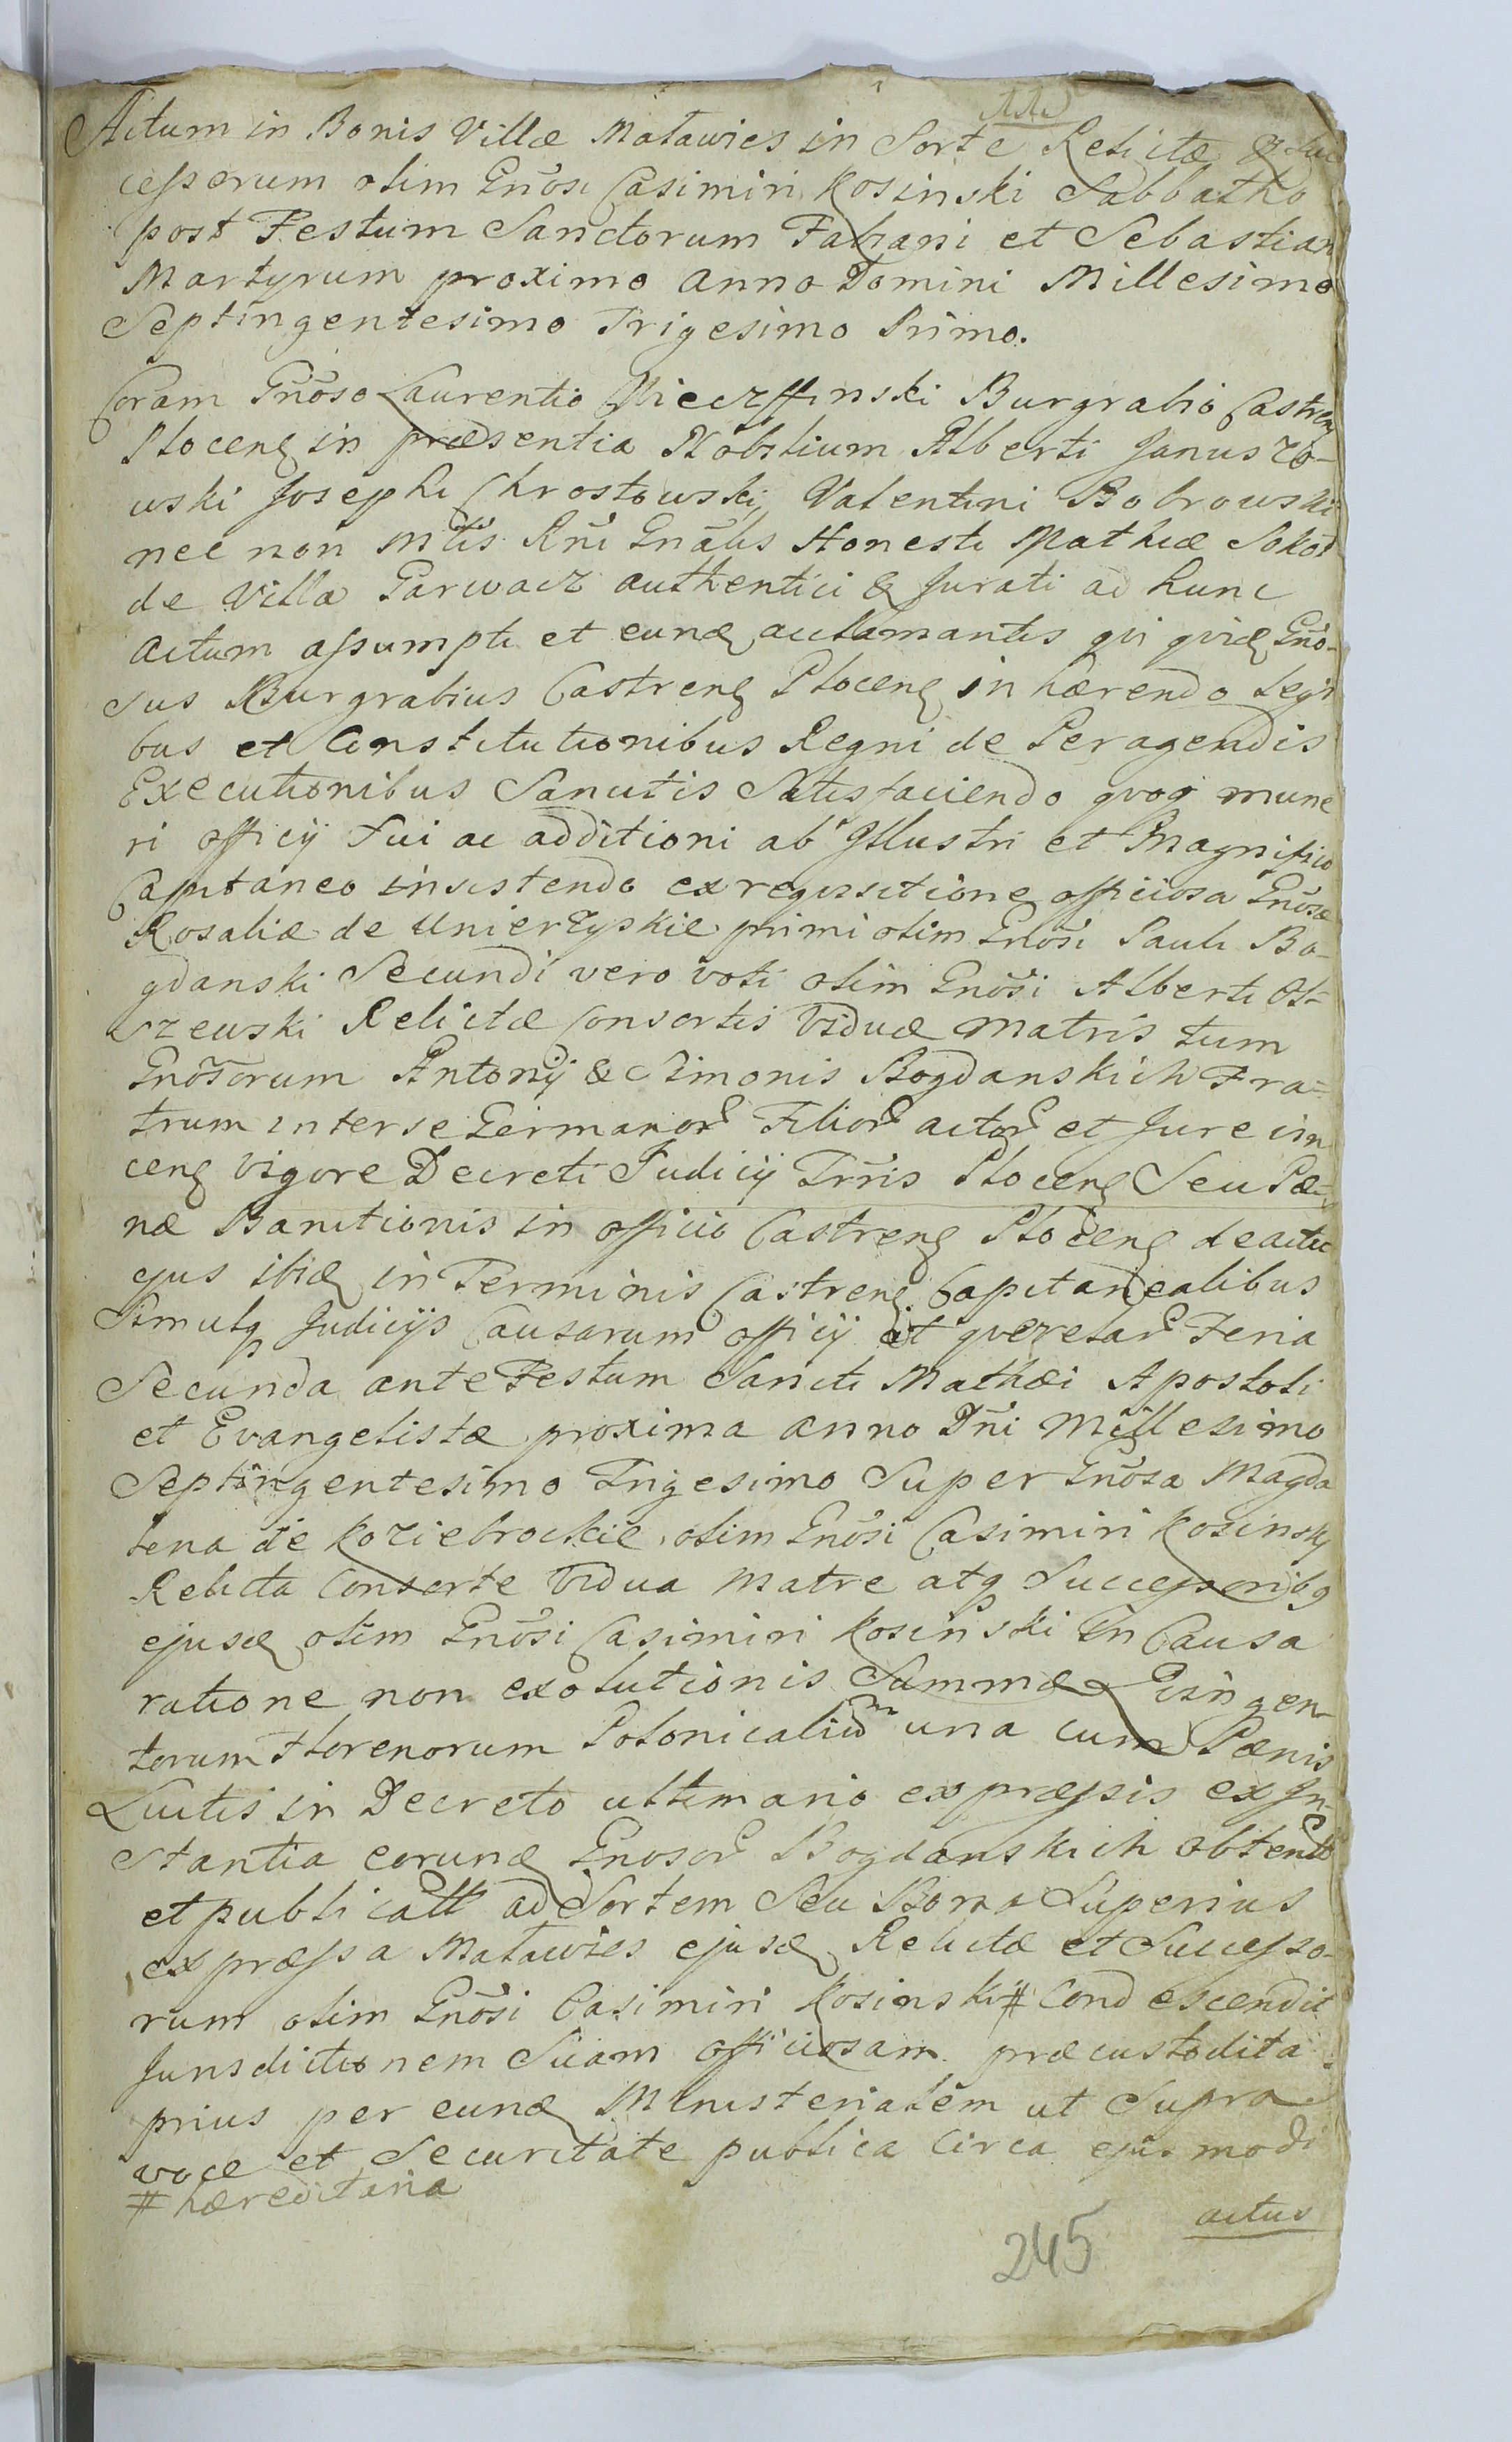 Actum in Bonis Villæ Matawies in Sorte Relictæ & Suc
cessorum olim Gnosi Casimiri Kosinski Sabbatho
post Festum Sanctorum Fabiani et Sebastian
Martyrum proximo anno Domini Millesimo
Septingentesimo Trigesimo Primo.
Coram Gnoso Laurentio Burgrabio Castren
Plocen in præsentia Nobilium Alberti Janusz̄o-
wski Josephi Chrostowskij Valentini Bobrowski
nec non Mtis Rni Gnalis Honesti Mathiæ Sokoł
de Villa Garwacz authentici & Jurati ad hunc
actum assumpti et eund acclamantis qvi qvid Gno-
sus Burgrabius Castren Plocen in hærendo Legi
bus et Constitutionibus Regni de Peragendis
Executionibus Sancitis Satisfaciendo qvoq mune
ri officij Sui ac additioni ab Illustri et Magnifico
Capitaneo insistendo ex reqvisitione officiosa Gnosæ
Rosaliæ de Unierzyskie primi olim Gnosi Pauli Bo-
gdanski Secundi vero voti olim Gnosi Alberti Ol-
szewski Relictæ Consortis Viduæ Matris tum
Gnosorum Antonij & Simonis Bogdanskich Fra=
trum inter se Germanor Filior actor et Jure vin
cen vigore Decreti Judicij Trris Plocen Seu Pæ-
næ Bannitionis in officio Castren Plocen de actu
ejus ibid in Terminis Castren Capitanealibus
Simulq Judicijs Causarum officij et qverelar Feria
Secunda ante Festum Sancti Mathæi Apostoli
et Evangelistæ proxima anno Dni Millesimo
Septingentesimo Trigesimo Super Gnosa Magda
lena de Koziebrockie olim Gnosi Casimiri Kosinskij
Relicta Consorte Vidua Matre atq Successorib9
ejusd olim Gnosi Casimiri Kosinski in Causa
ratione non exolutionis Summæ Qvingen
torum Florenorum Polonicalium una cum Pænis
Luitis in Decreto ultimario expræssis ex In-
stantia eorund Gnosor Bogdanskich obtento
et publicatt ad Sortem Seu Bona Superius
expræssa Matawies ejusd Relictæ et Successo-
rum olim Gnosi Casimiri Kosinski # Condescendit
Jurisdictionem Suam officiosam præcustodita
prius per eund Ministerialem ut Supra
voce et Securitate publica circa ejus modi
# hæreditaria
actus
245